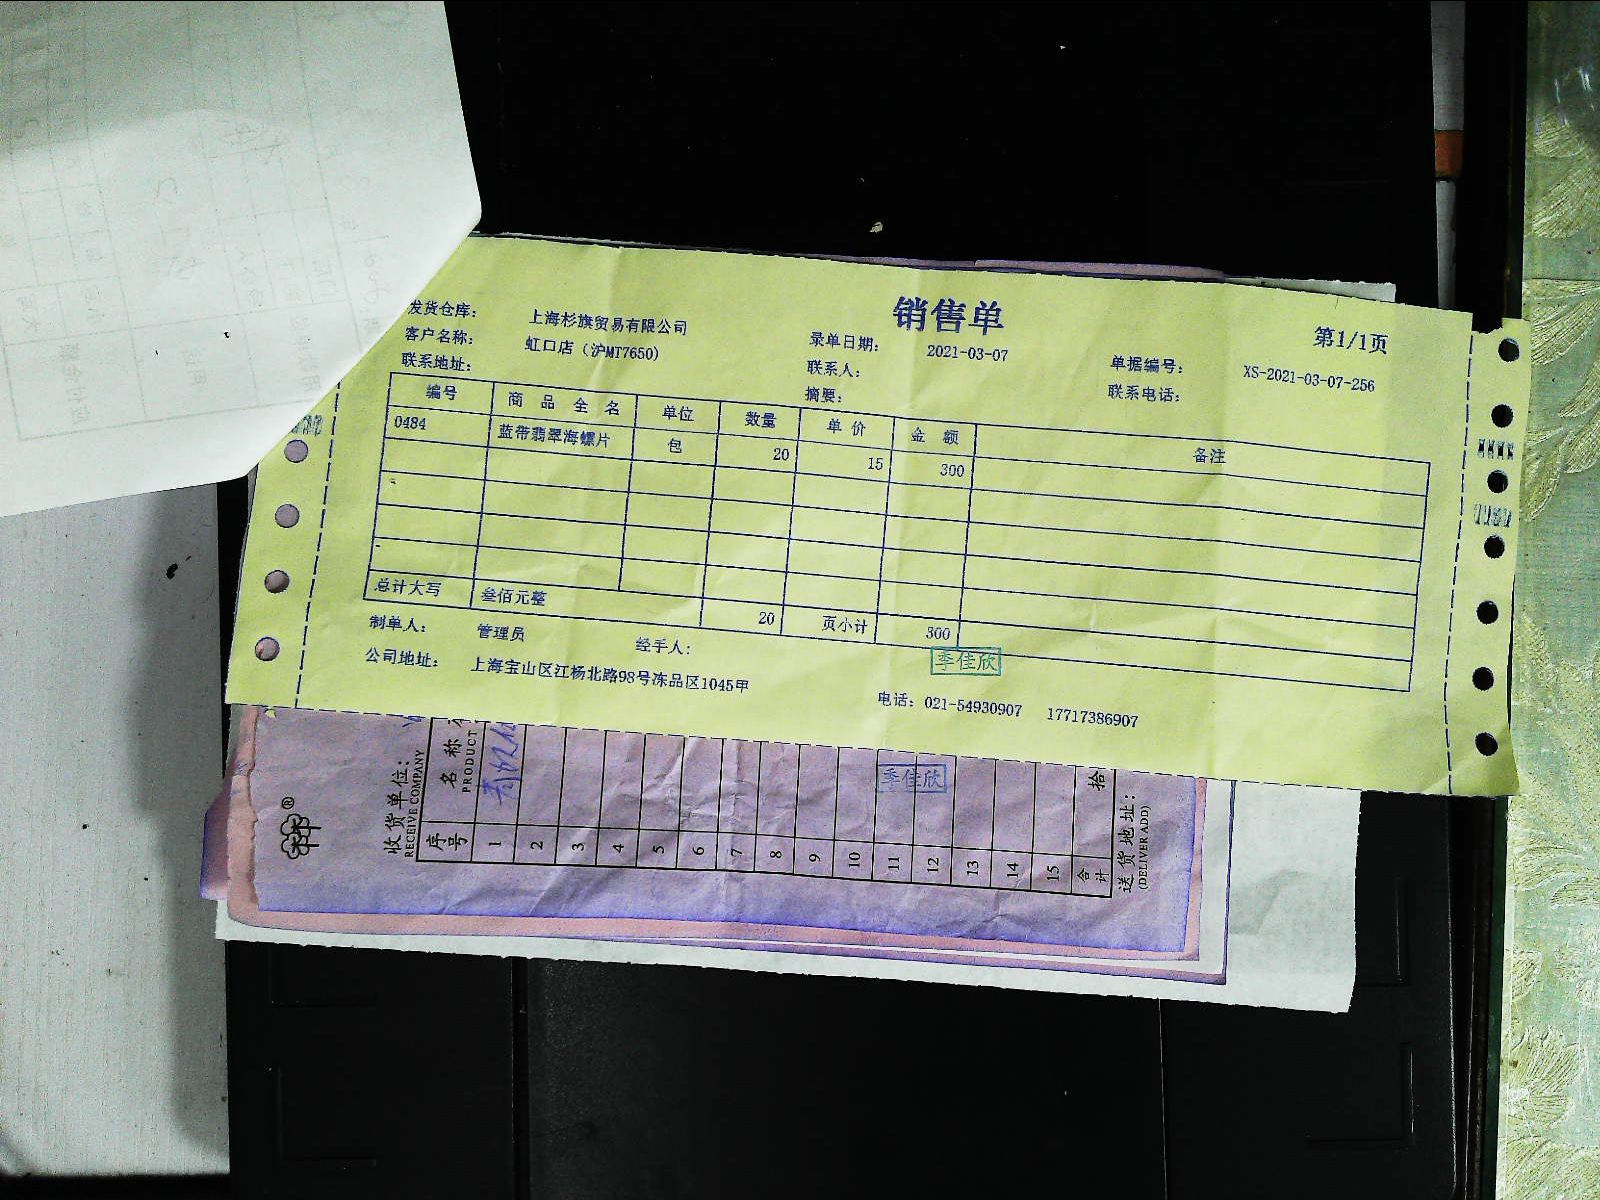 销售单
第1/1页
发货仓库： 上海杉旗贸易有限公司 录单日期： 2021-03-07 单据编号： XS-2021-03-07-256
客户名称： 虹口店（沪MT7650） 联系人： 联系电话：
联系地址： 摘要：
编号 商品全名 单位 数量 单价 金额 备注
0484 蓝带翡翠海螺片 包 20 15 300
总计大写 叁佰元整 20 页小计 300
制单人： 管理员 经手人：
李佳欣
公司地址： 上海宝山区江杨北路98号冻品区1045甲 电话：021-54930907 17717386907
收货单位：
RECEIVE COMPANY
序号 名称
PRODUCT
1
2
3
4
5
6
7
8
9
10
11
12
13
14
15
合计 拾
李佳欣
送货地址：
(DELIVER ADD)